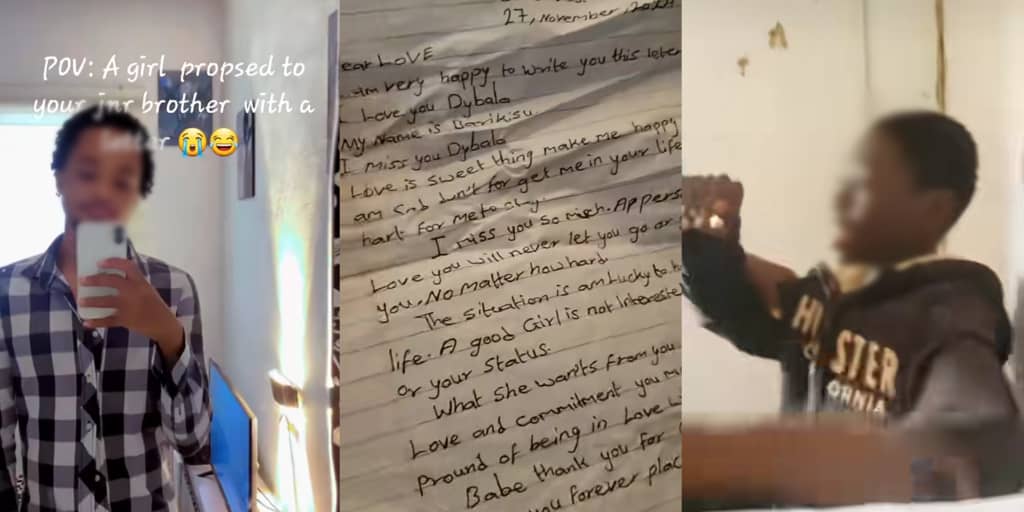 POV: A girl propsed to
your jnr brother with a
😭😄
27, November, 
ear LOVE
am very happy to write you this leter
I Love you Dybala
My Name is Barikisu.
I miss you Dybala
Love is sweet thing make me happy
am and don't for get me in your life
hart for me to
I miss you so much. A pers
Love you will never let you go or
you. No matter how hard
The situation is am Lucky to
life. A good Girl is not Intereste
or your status.
What She wants from you
Love and commitment you
Pround of being in Love
Babe thank you for
you forever plac
STER
ORNIA